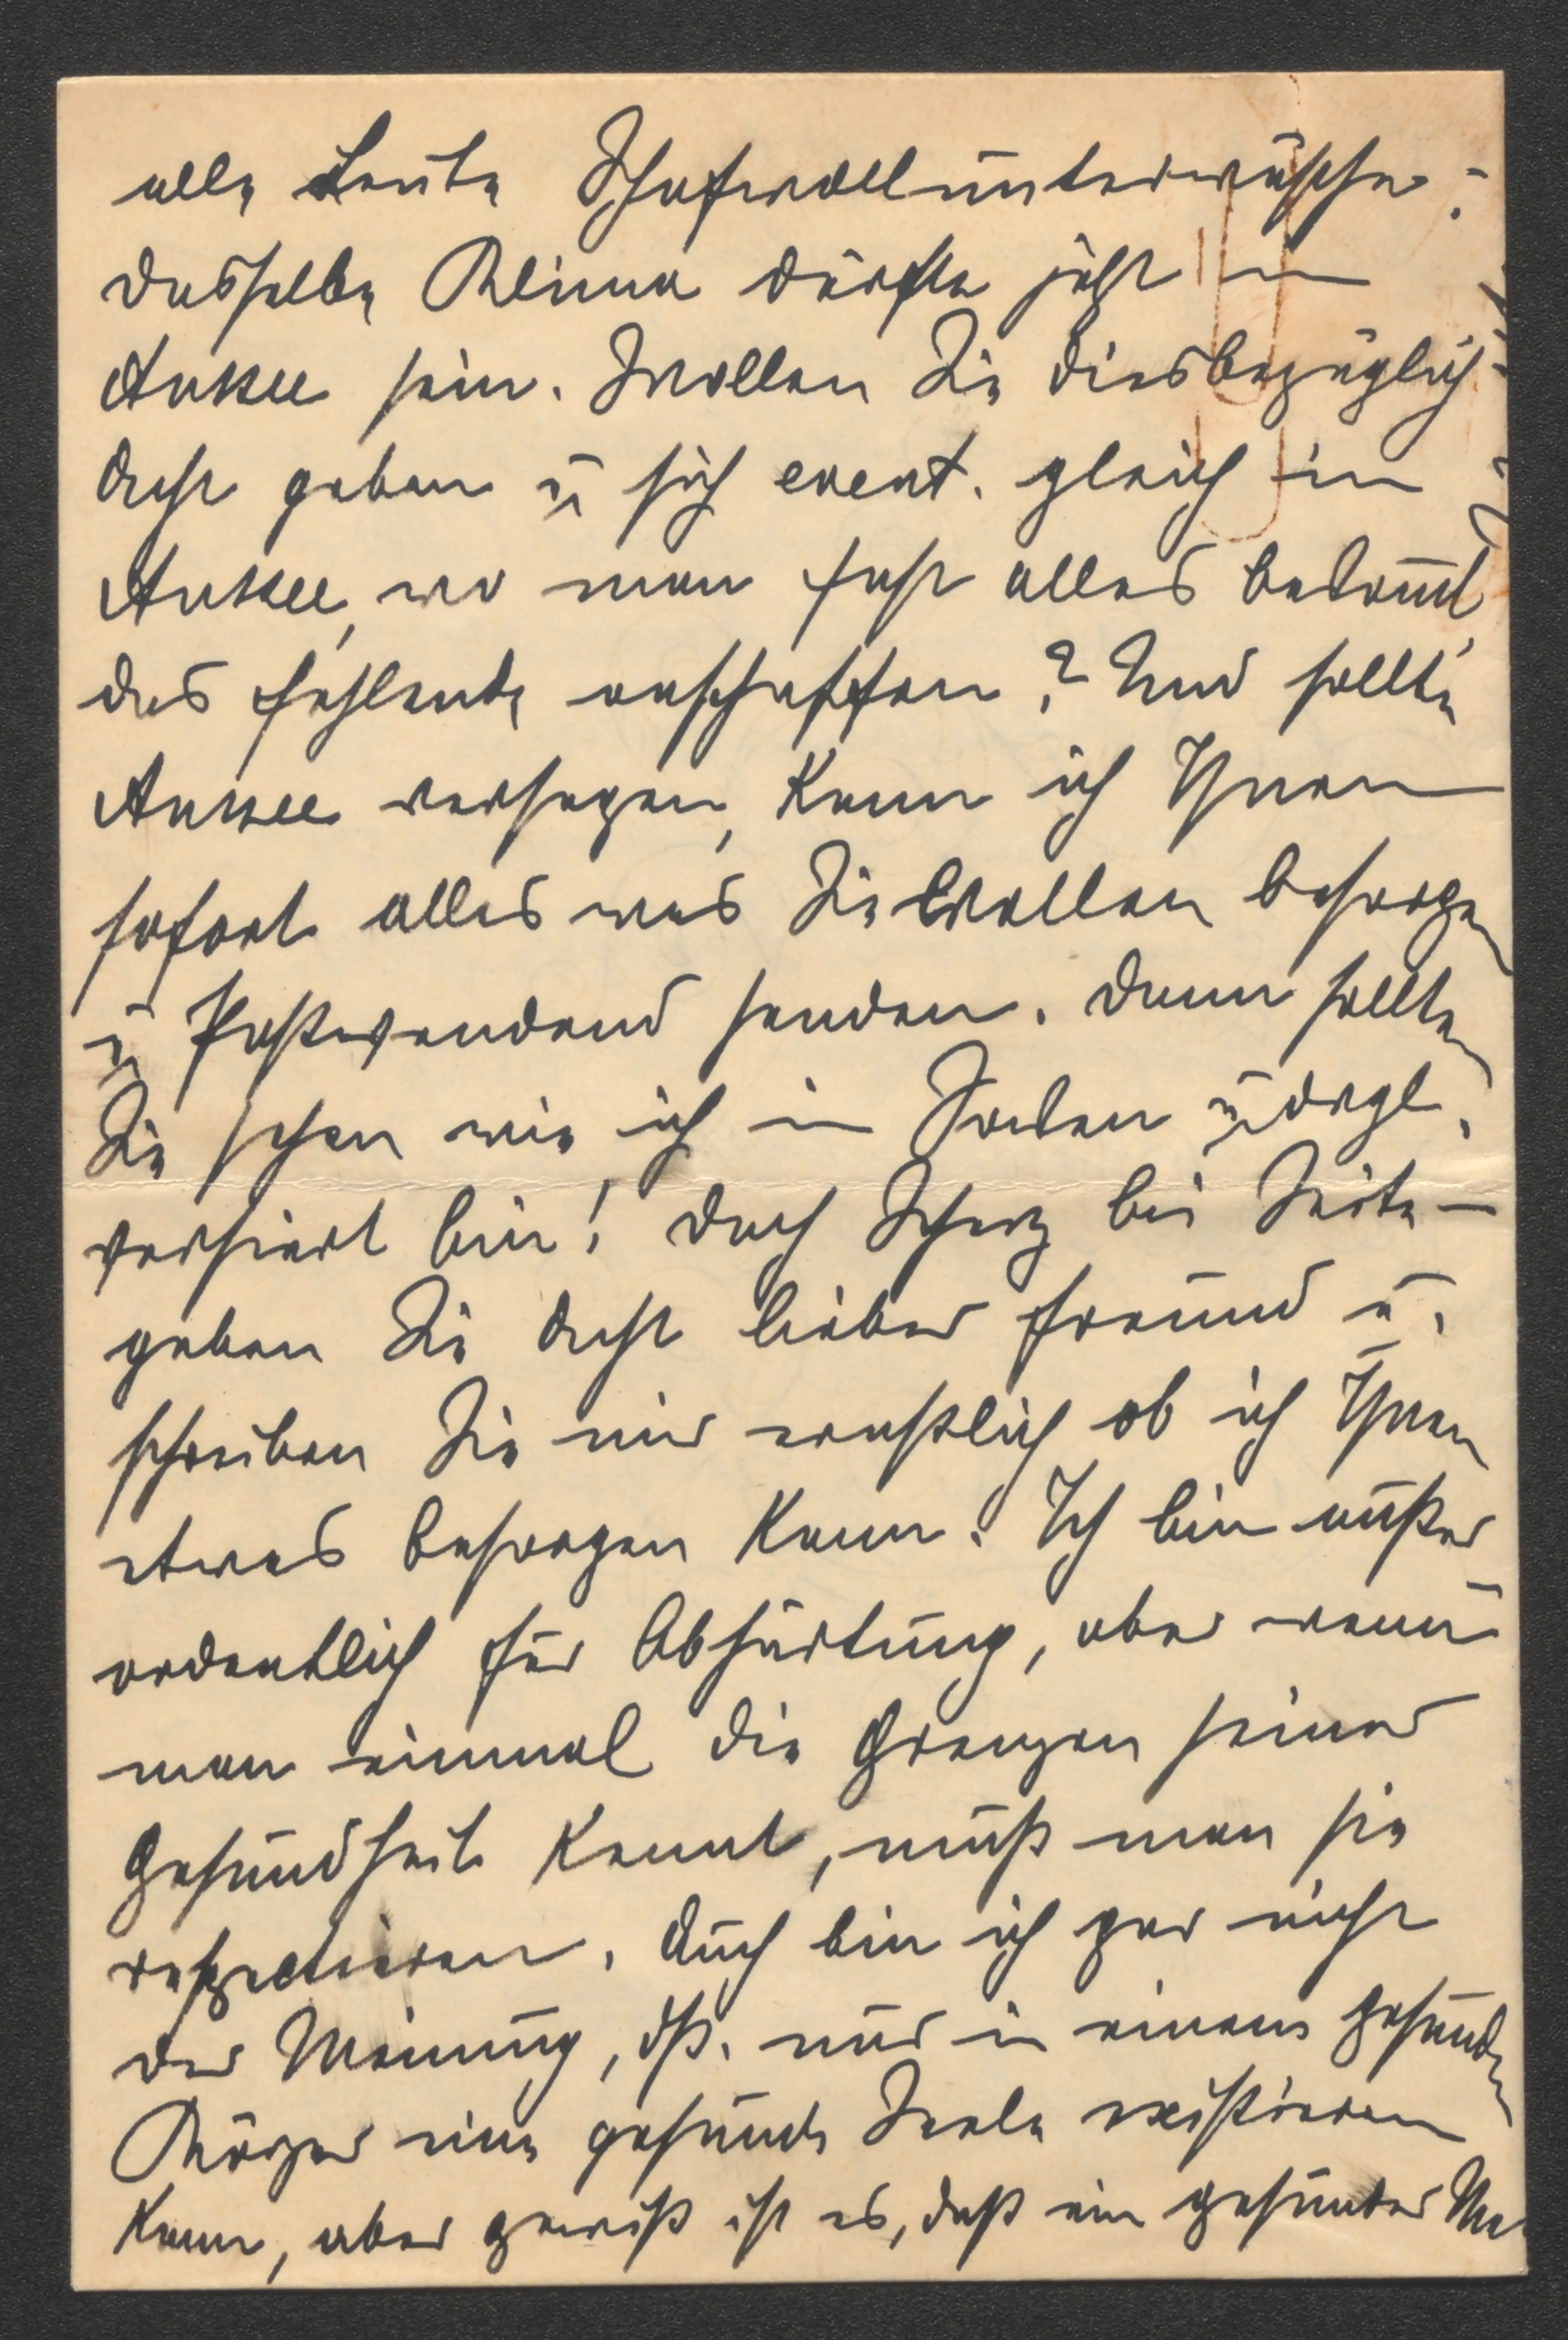 alle Leute Schafwollunterwäsche;
dasselbe Klima dürfte jetzt in
Aussee sein. Wollen Sie diesbezüglich
Acht geben u sich event. gleich in
Aussee, wo man fast alles bekomt,
das fehlende anschaffen? Und sollte
Aussee versagen, kann ich Ihnen
sofort alles was Sie wollen besorgen
u postwendend senden. Dann sollten
Sie sehen wie ich in Socken u drgl.
versiert bin! Doch Scherz bei Seite –
geben Sie Acht lieber Freund u.
schreiben Sie mir ernstlich ob ich Ihnen
etwas besorgen kann. Ich bin außer
ordentlich für Abhärtung, aber wenn
man einmal die Grenzen seiner
Gesundheit kennt, muß man sie
respectieren. Auch bin ich gar nicht
der Meinung, dß. nur in einem gesunden
Körper eine gesunde Seele existieren
kann, aber gewiß ist es, daß ein gesunder